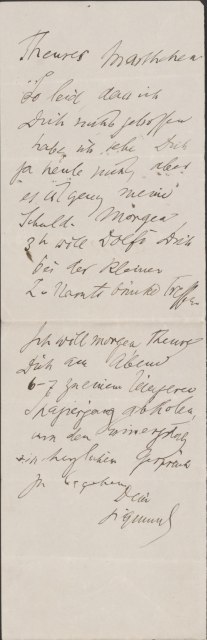 Theures Marthchen
So leid dass ich
Dich nicht getroffen
habe, ich sehe Dich
ja heute nicht, aber
es ist ganz meine
Schuld. Morgen
3h will Dolfi Dich
bei der kleinen
treffen.
Ich will morgen Theure
Dich am Abend
6-7 zu einem längeren
Spaziergang abholen,
um den
ein herzlichen Gespräch
zu
Dein
Sigmund